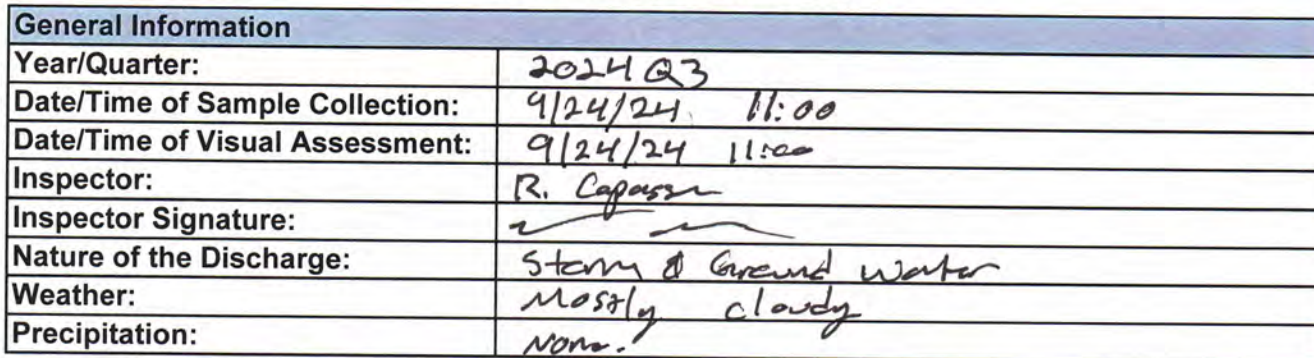 General Information
Year/Quarter: 2024 Q3
Date/Time of Sample Collection: 9/24/24 11:00
Date/Time of Visual Assessment: 9/24/24 11:00
Inspector: R. Capasso
Inspector Signature:
Nature of the Discharge: Storm & Ground Water
Weather: Mostly cloudy
Precipitation: None.